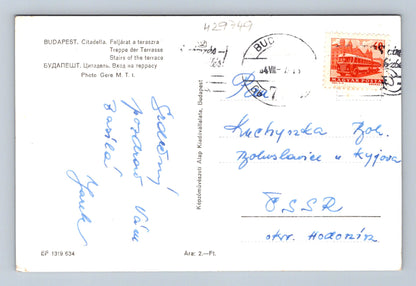 429749
BUDAPEST, Citadella. Feljárat a teraszra
Treppe der Terrasse
Stairs of the terrace
БУДАПЕШТ. Цитадель. Вход на террасу
Photo Gere M. T. I.
Srdečný
pozdrav Vám
zasílá
Jarek
BP 1319 634
Ára: 2.—Ft.
Képzőművészeti Alap Kiadóvállalata, Budapest
BUD
7
40f
MAGYAR POSTA
Kuchyňka Boh.
Bohuslavice u Kyjova
ČSSR
okr. Hodonín